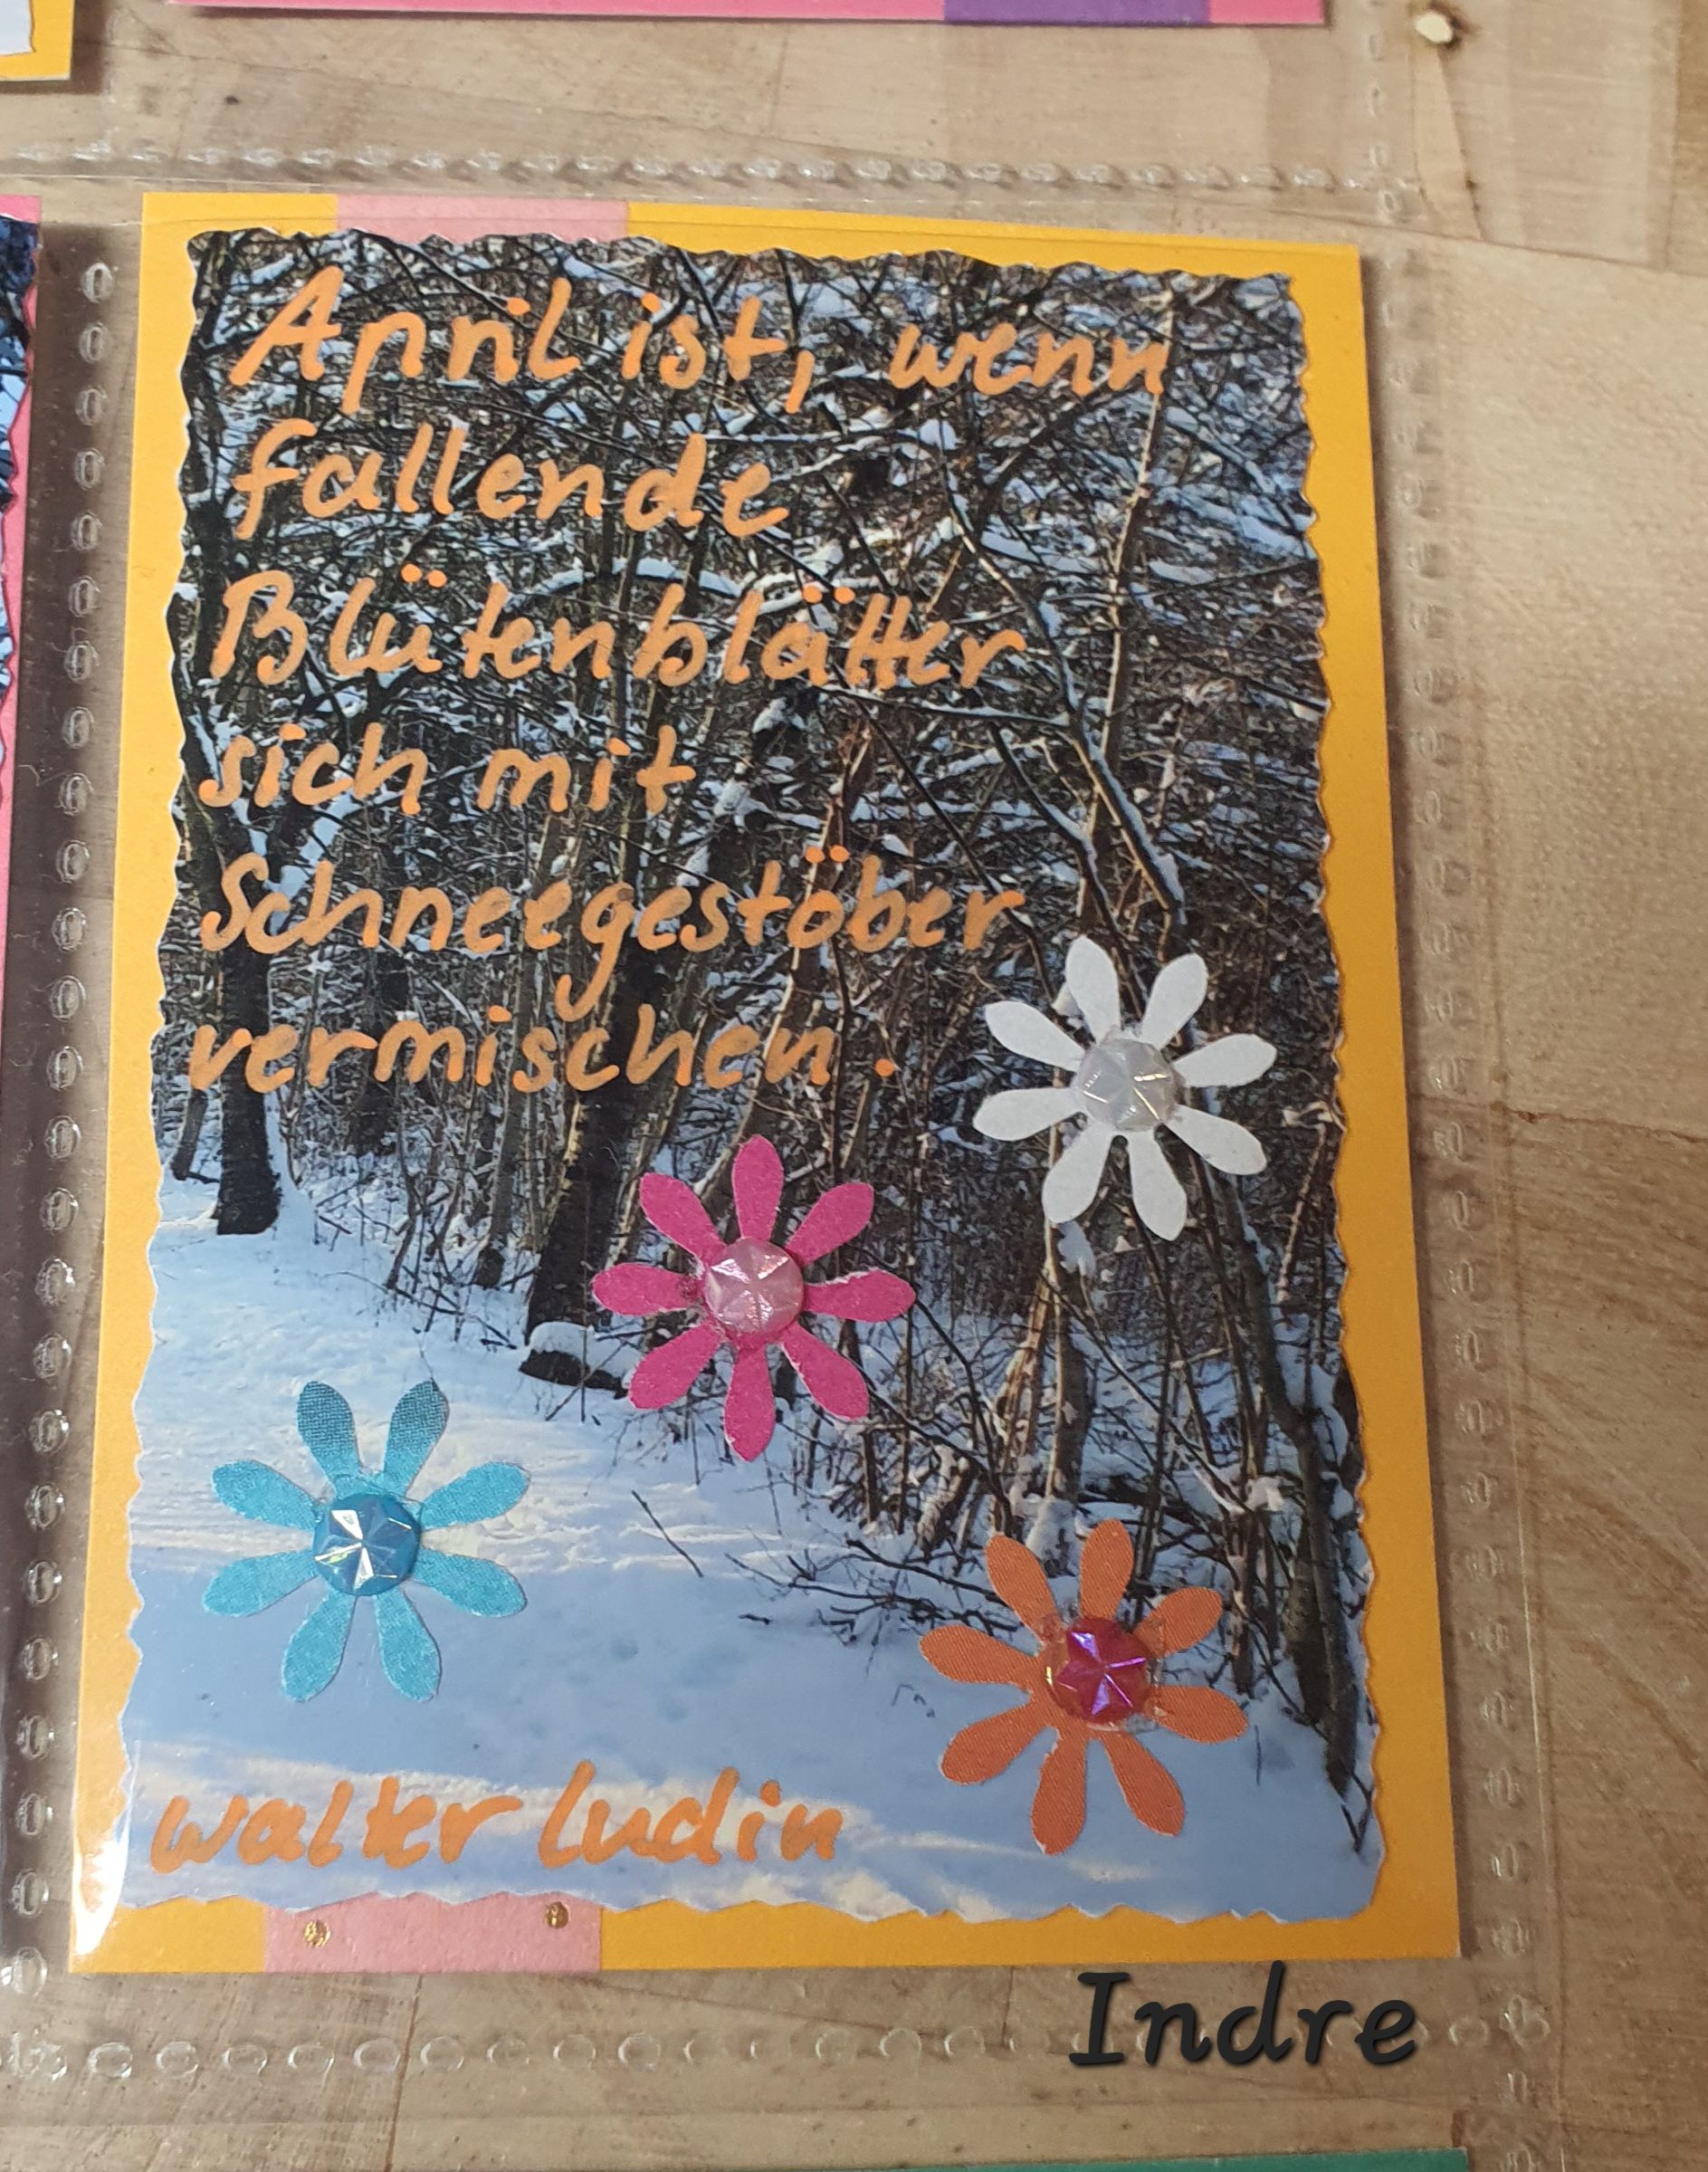 April ist, wenn
fallende
Blütenblätter
sich mit
Schneegestöber
vermischen.
walter ludin
Indre